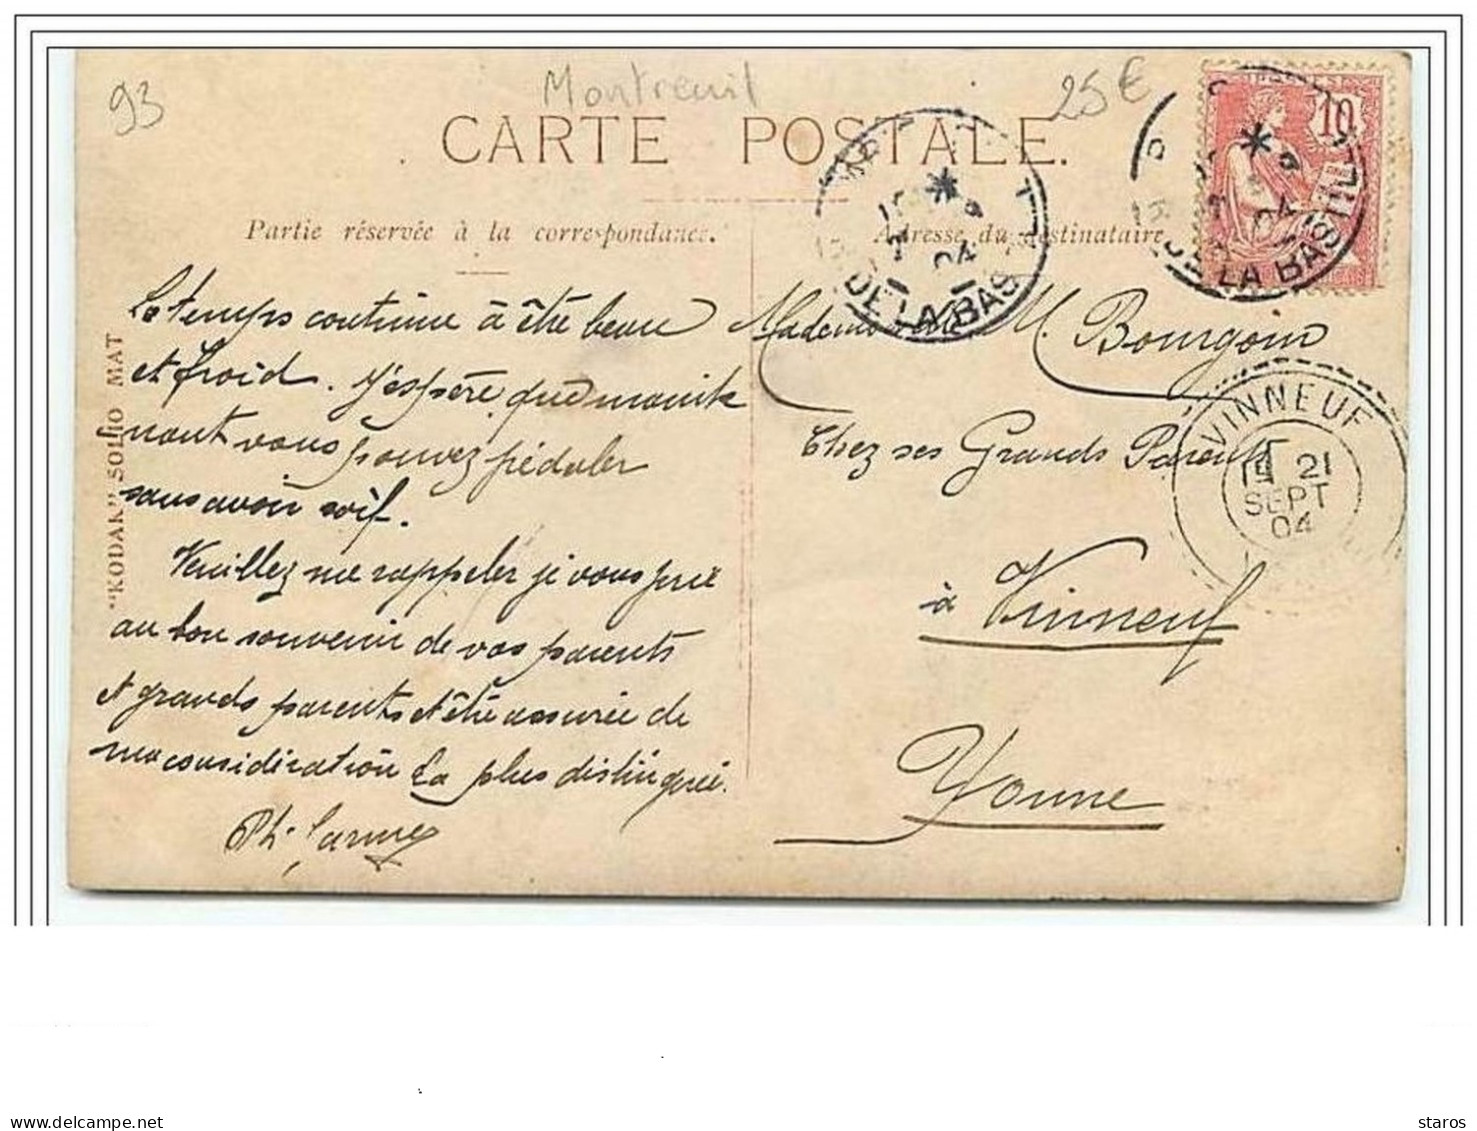 93
Montreuil
25€
CARTE POSTALE.
Partie réservée à la correspondance.
Adresse du destinataire
10
DE LA BASTILLE
04
DE LA BAS
04
"KODAK" SOLIO MAT
Le temps continue à être beau
et froid. J'espère que maintenant
vous pouvez pédaler
sans avoir soif.
Veuillez me rappeler je vous prie
au bon souvenir de vos parents
et grands parents et être assurée de
ma considération la plus distinguée.
Mademoiselle M. Bourgoin
Chez ses Grands Parents
à Vinneuf
Yonne
VINNEUF
21
SEPT
04
staros